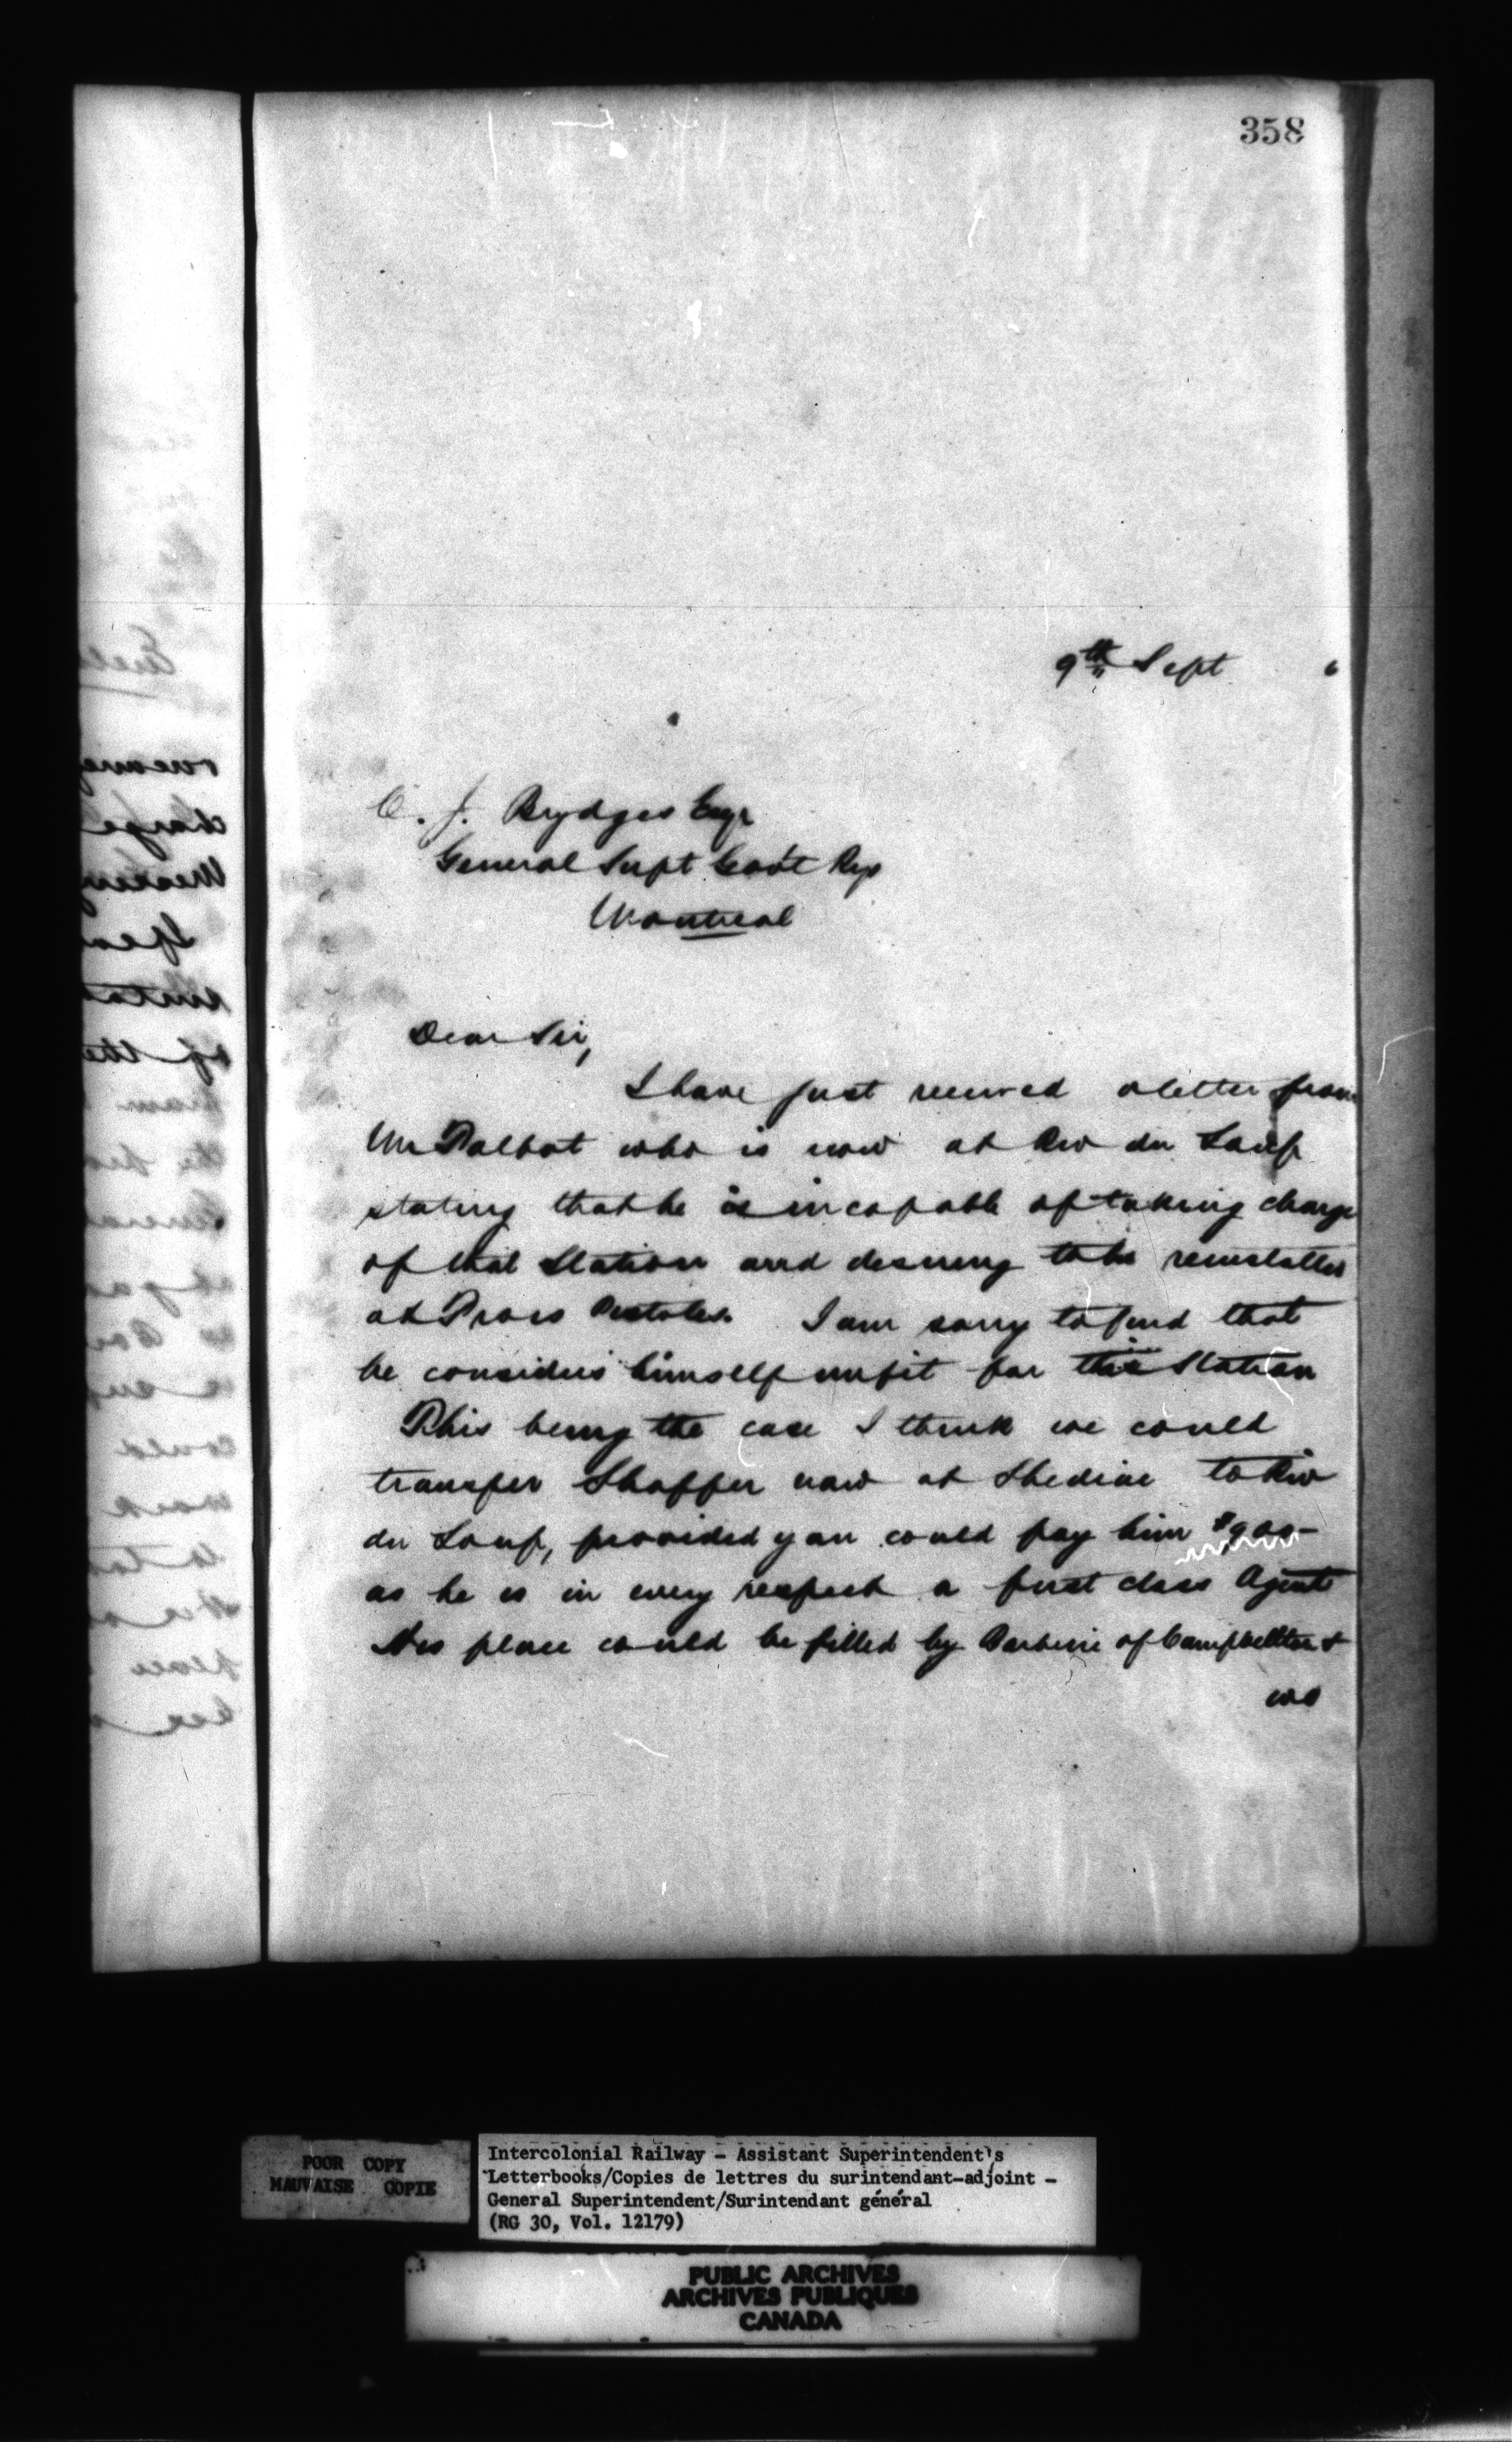 358
9th Sept 6
C. J. Brydges Esqr
General Supt Govt Rys
Montreal
Dear Sir,
I have just received a letter from
Mr Talbot who is now at Riv du Loup
stating that he is incapable of taking charge
of that Station and desiring to be reinstalled
at Trois Pistoles. I am sorry to find that
he considers himself unfit for this Station
This being the case I think we could
transfer Shaffer now at Shediac to Riv
du Loup, provided you could pay him $900-
as he is in every respect a first class Agent
His place could be filled by Barberie of Campbellton &
we
POOR COPY
MAUVAISE COPIE
Intercolonial Railway - Assistant Superintendent's
Letterbooks/Copies de lettres du surintendant-adjoint -
General Superintendent/Surintendant général
(RG 30, Vol. 12179)
PUBLIC ARCHIVES
ARCHIVES PUBLIQUES
CANADA